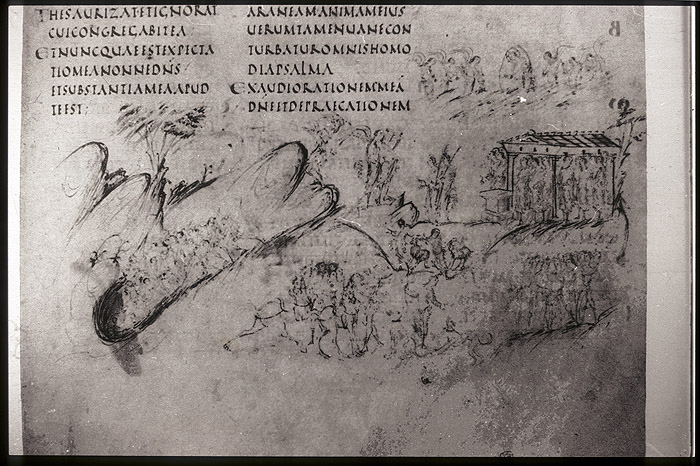 THESAURIZATETIGNORAT
CUICONGREGABITEA
ETNUNCQUAEESTEXPECTA
TIOMEANONNEDN̄S
ETSUBSTANTIAMEAAPUD
TEEST;
ARANEAMANIMAMEIUS
UERUMTAMENUANECON
TURBATUROMNISHOMO
DIAPSALMA
EXAUDIORATIONEMMEĀ
DN̄EETDEPRAECATIONEM